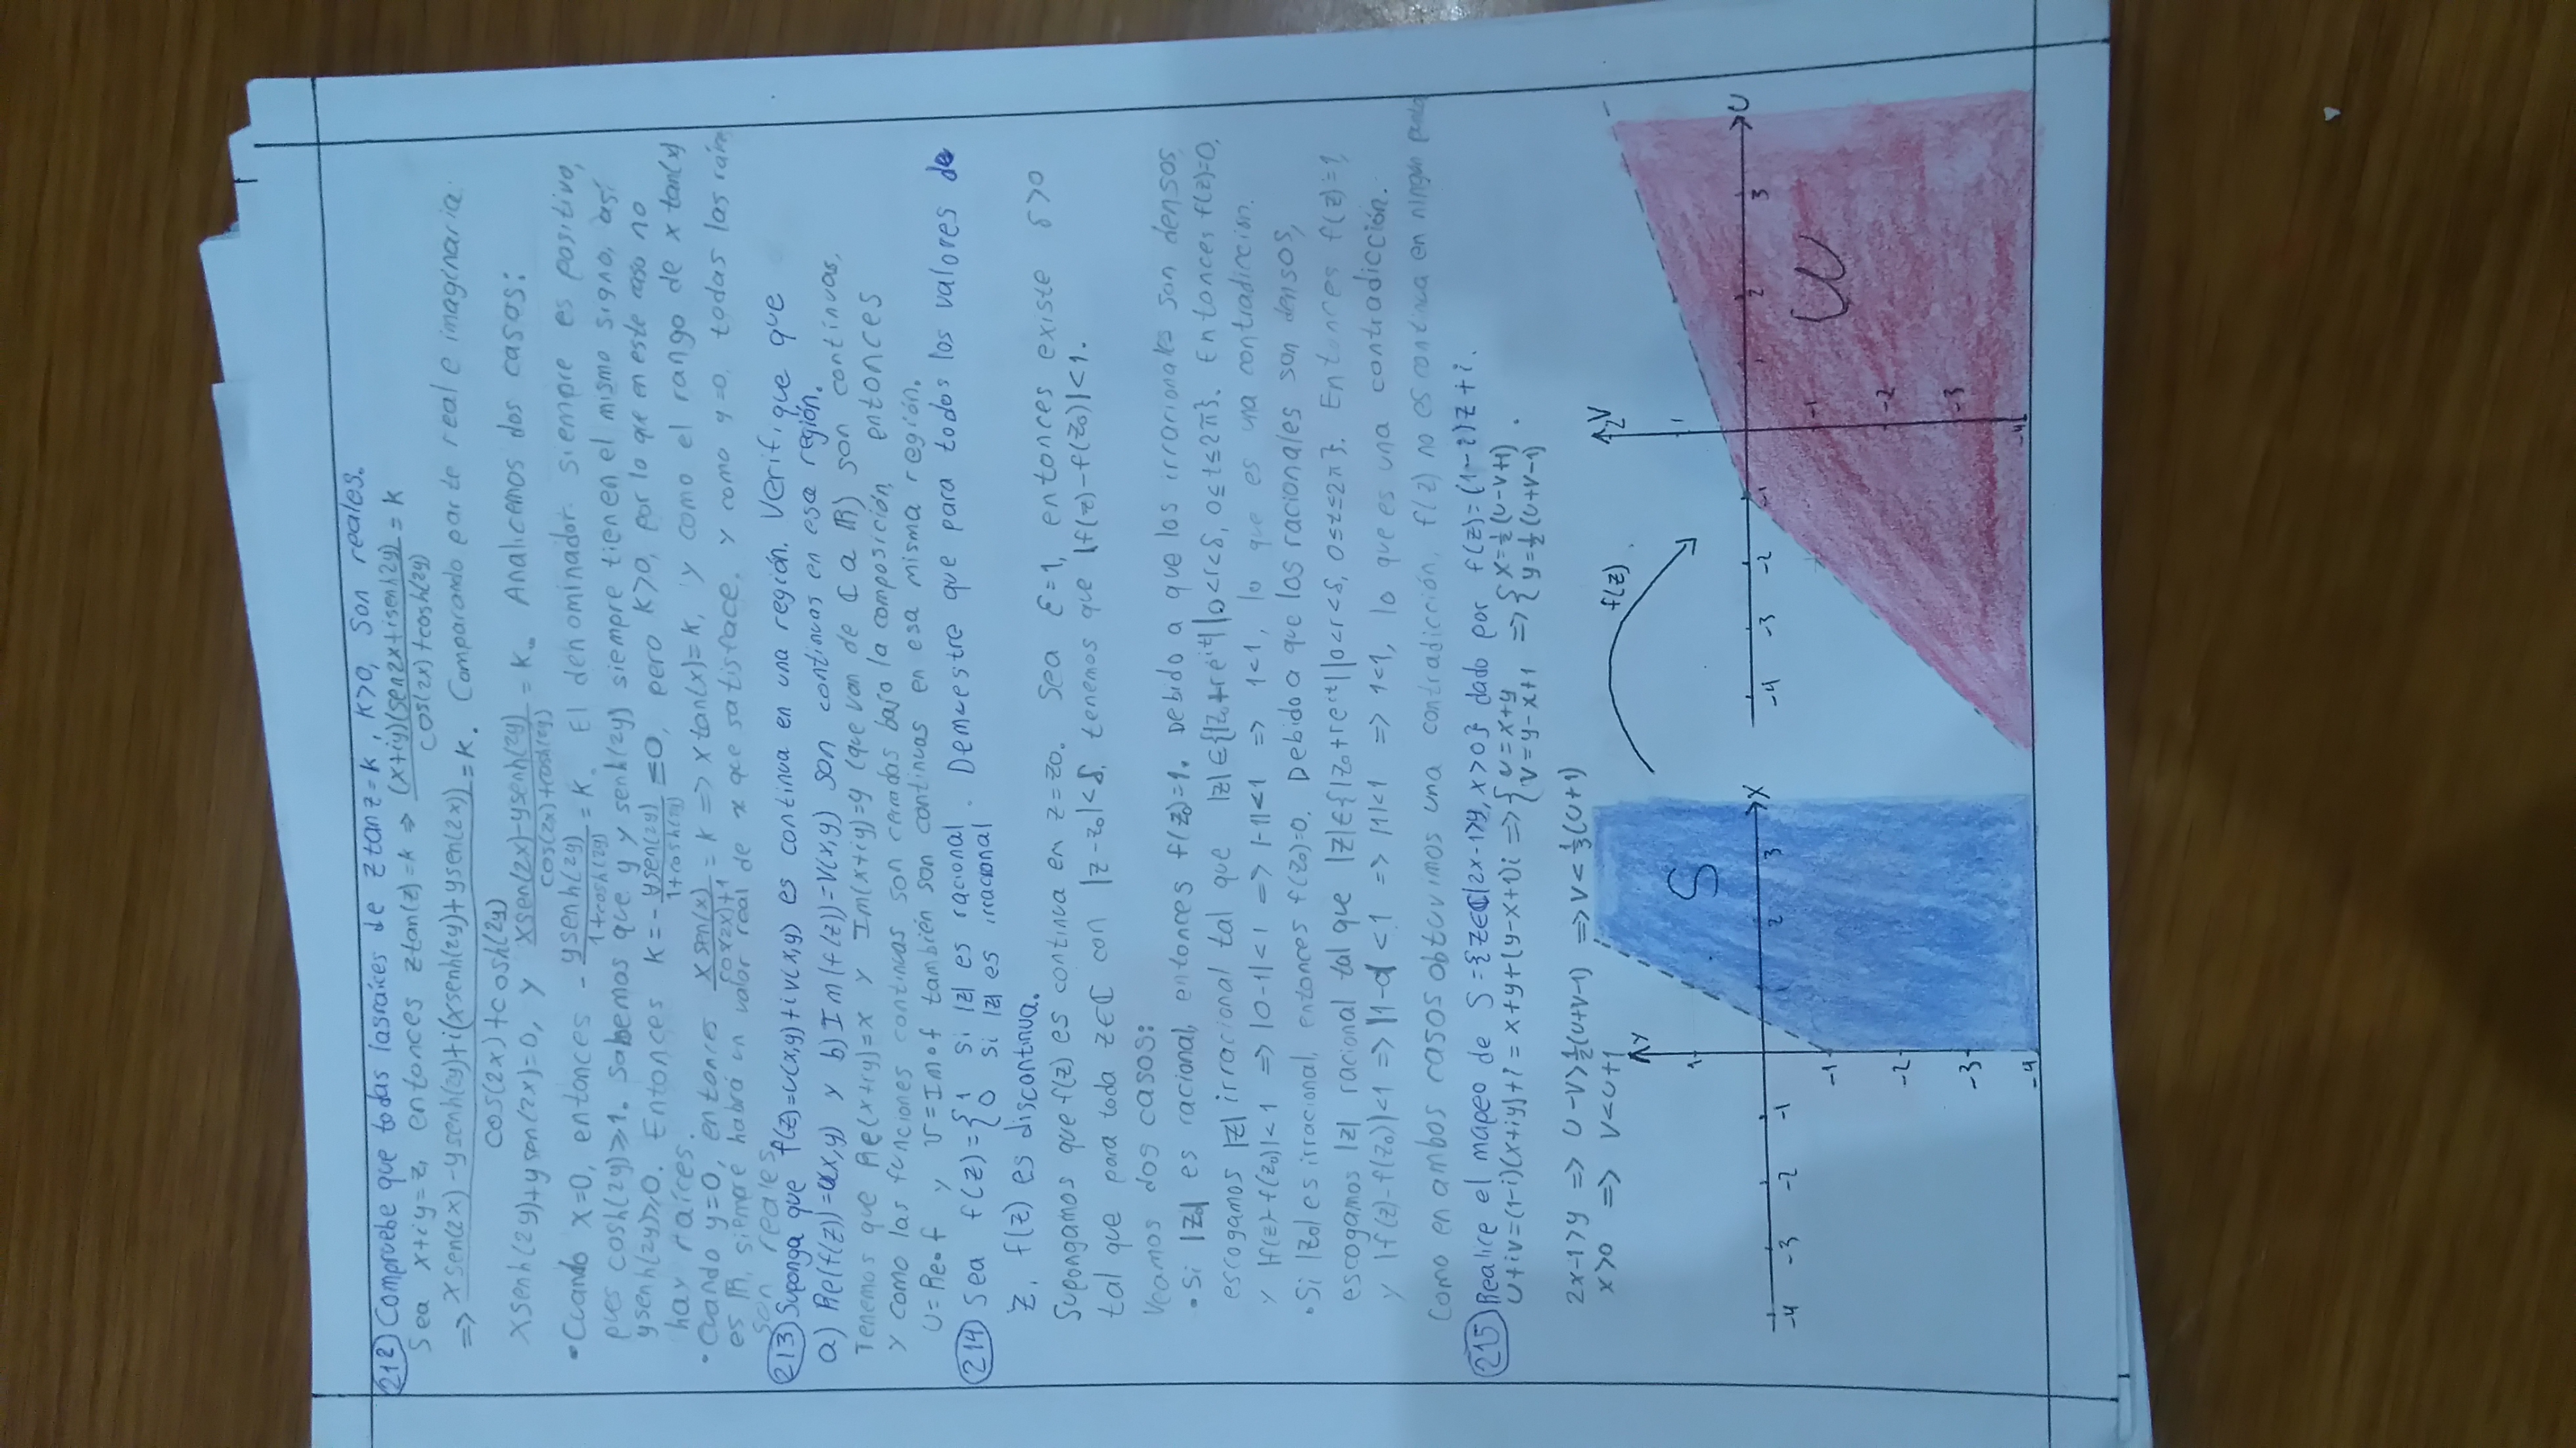 212) Compruebe que todas las raíces de z tan z = k, k>0, son reales.
Sea x+iy=z, entonces z tan(z)=k ⇒ (x+iy)(sen2x+isenh2y)/cos(2x)+cosh(2y) = k
⇒ xsen(2x)-ysenh(2y)+i(xsenh(2y)+ysen(2x))/cos(2x)+cosh(2y) = k. Comparando parte real e imaginaria:
xsenh(2y)+ysen(2x)=0, y xsen(2x)-ysenh(2y)/cos(2x)+cosh(2y) = k. Analicemos dos casos:
•Cuando x=0, entonces -ysenh(2y)/1+cosh(2y) = k. El denominador siempre es positivo,
pues cosh(2y)≥1. Sabemos que y y senh(2y) siempre tienen el mismo signo, así
ysenh(2y)≥0. Entonces k=-ysen(2y)/1+cosh(2y) ≤0, pero k>0, por lo que en este caso no
hay raíces.
•Cuando y=0, entonces xsen(x)/cos(2x)+1 = k ⇒ x tan(x)=k, y como el rango de x tan(x)
es ℝ, siempre habrá un valor real de x que satisface. Y como y=0, todas las raíces
son reales.
213) Suponga que f(z)=u(x,y)+iv(x,y) es continua en una región. Verifique que
a) Re(f(z))=u(x,y) y b) Im(f(z))=v(x,y) son continuas en esa región.
Tenemos que Re(x+iy)=x y Im(x+iy)=y (que van de ℂ a ℝ) son continuas,
y como las funciones continuas son cerradas bajo la composición, entonces
u=Re∘f y v=Im∘f también son continuas en esa misma región.
214) Sea f(z)={1 si |z| es racional . Demuestre que para todos los valores de
0 si |z| es irracional
z, f(z) es discontinua.
Supongamos que f(z) es continua en z=z₀. Sea ε=1, entonces existe δ>0
tal que para toda z∈ℂ con |z-z₀|<δ, tenemos que |f(z)-f(z₀)|<1.
Veamos dos casos:
•Si |z₀| es racional, entonces f(z₀)=1. Debido a que los irracionales son densos,
escogamos |z| irracional tal que |z|∈{|z₀+re^{it}||0<r<δ, 0≤t≤2π}. Entonces f(z)=0,
y |f(z)-f(z₀)|<1 ⇒ |0-1|<1 ⇒ |-1|<1 ⇒ 1<1, lo que es una contradicción.
•Si |z₀| es irracional, entonces f(z₀)=0. Debido a que los racionales son densos,
escogamos |z| racional tal que |z|∈{|z₀+re^{it}||0<r<δ, 0≤t≤2π}. Entonces f(z)=1,
y |f(z)-f(z₀)|<1 ⇒ |1-0|<1 ⇒ |1|<1 ⇒ 1<1, lo que es una contradicción.
Como en ambos casos obtuvimos una contradicción, f(z) no es continua en ningún punto
215) Realice el mapeo de S={z∈ℂ|2x-1>y, x>0} dado por f(z)=(1-i)z+i.
u+iv=(1-i)(x+iy)+i = x+y+(y-x+1)i ⇒ {u=x+y ⇒ {x=½(u-v+1) .
v=y-x+1 y=½(u+v-1)
2x-1>y ⇒ u-v>½(u+v-1) ⇒ v<⅓(u+1)
x>0 ⇒ v<u+1
f(z)
Y
1
S
-4 -3 -2 -1 1 2 3 X
-1
-2
-3
-4
2 V
1
-4 -3 -2 -1 1 2 3 U
-1
W
-2
-3
-4